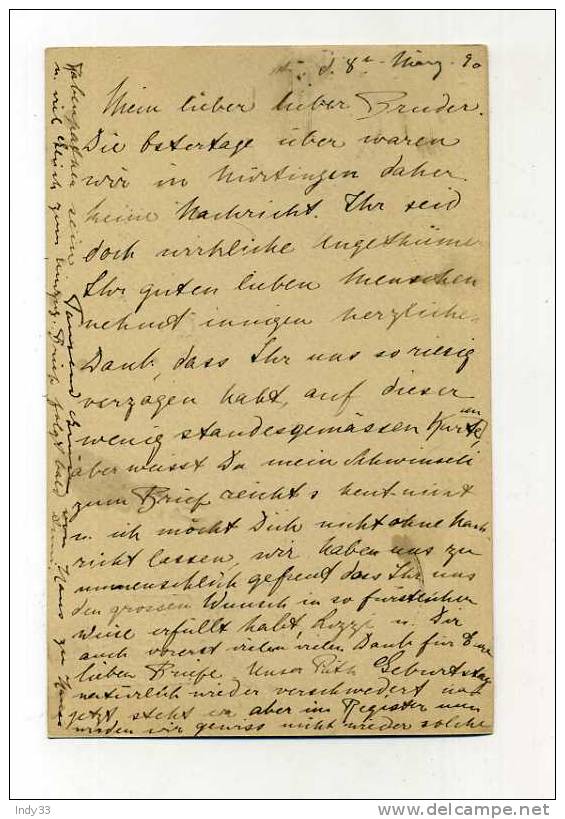 d. 8t März 90
Mein lieber lieber Bruder.
Die Ostertage über waren
wir in Nürtingen daher
keine Nachricht. Ihr seid
doch wirkliche Ungethüme
Ihr guten lieben Menschen
nehmt innigen herzliche-
Dank, dass Ihr uns so riesig
verzogen habt, auf dieser
wenig standesgemässen Karte,
aber weisst Du mein
zum Brief reicht s heut nicht
u. ich möcht Dich nicht ohne Nach
richt lassen, wir haben uns zu
unmenschlich gefreut dass Ihr uns
den grossen Wunsch in so fürstlicher
Weise erfüllt habt, u. Dir
auch vorerst vielen vielen Dank für Eure
lieben Briefe. Unser Geburtstag
natürlich wieder
jetzt steht er aber im Register nun
werden wir gewiss nicht wieder solche
sein Tausend von Hans zu Haus
u. viel Brief folgt bald
Indy33
www.delcampe.net